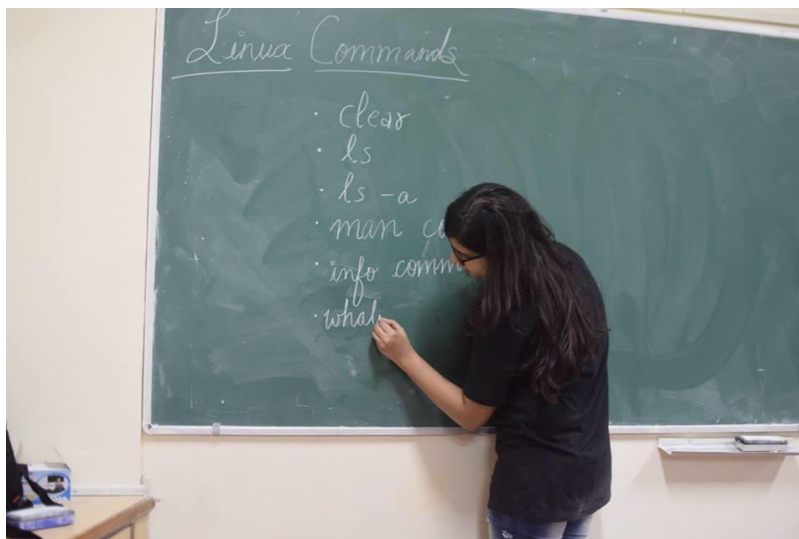 Linux Commands
· clear
· ls
· ls -a
· man
· info comm
· what